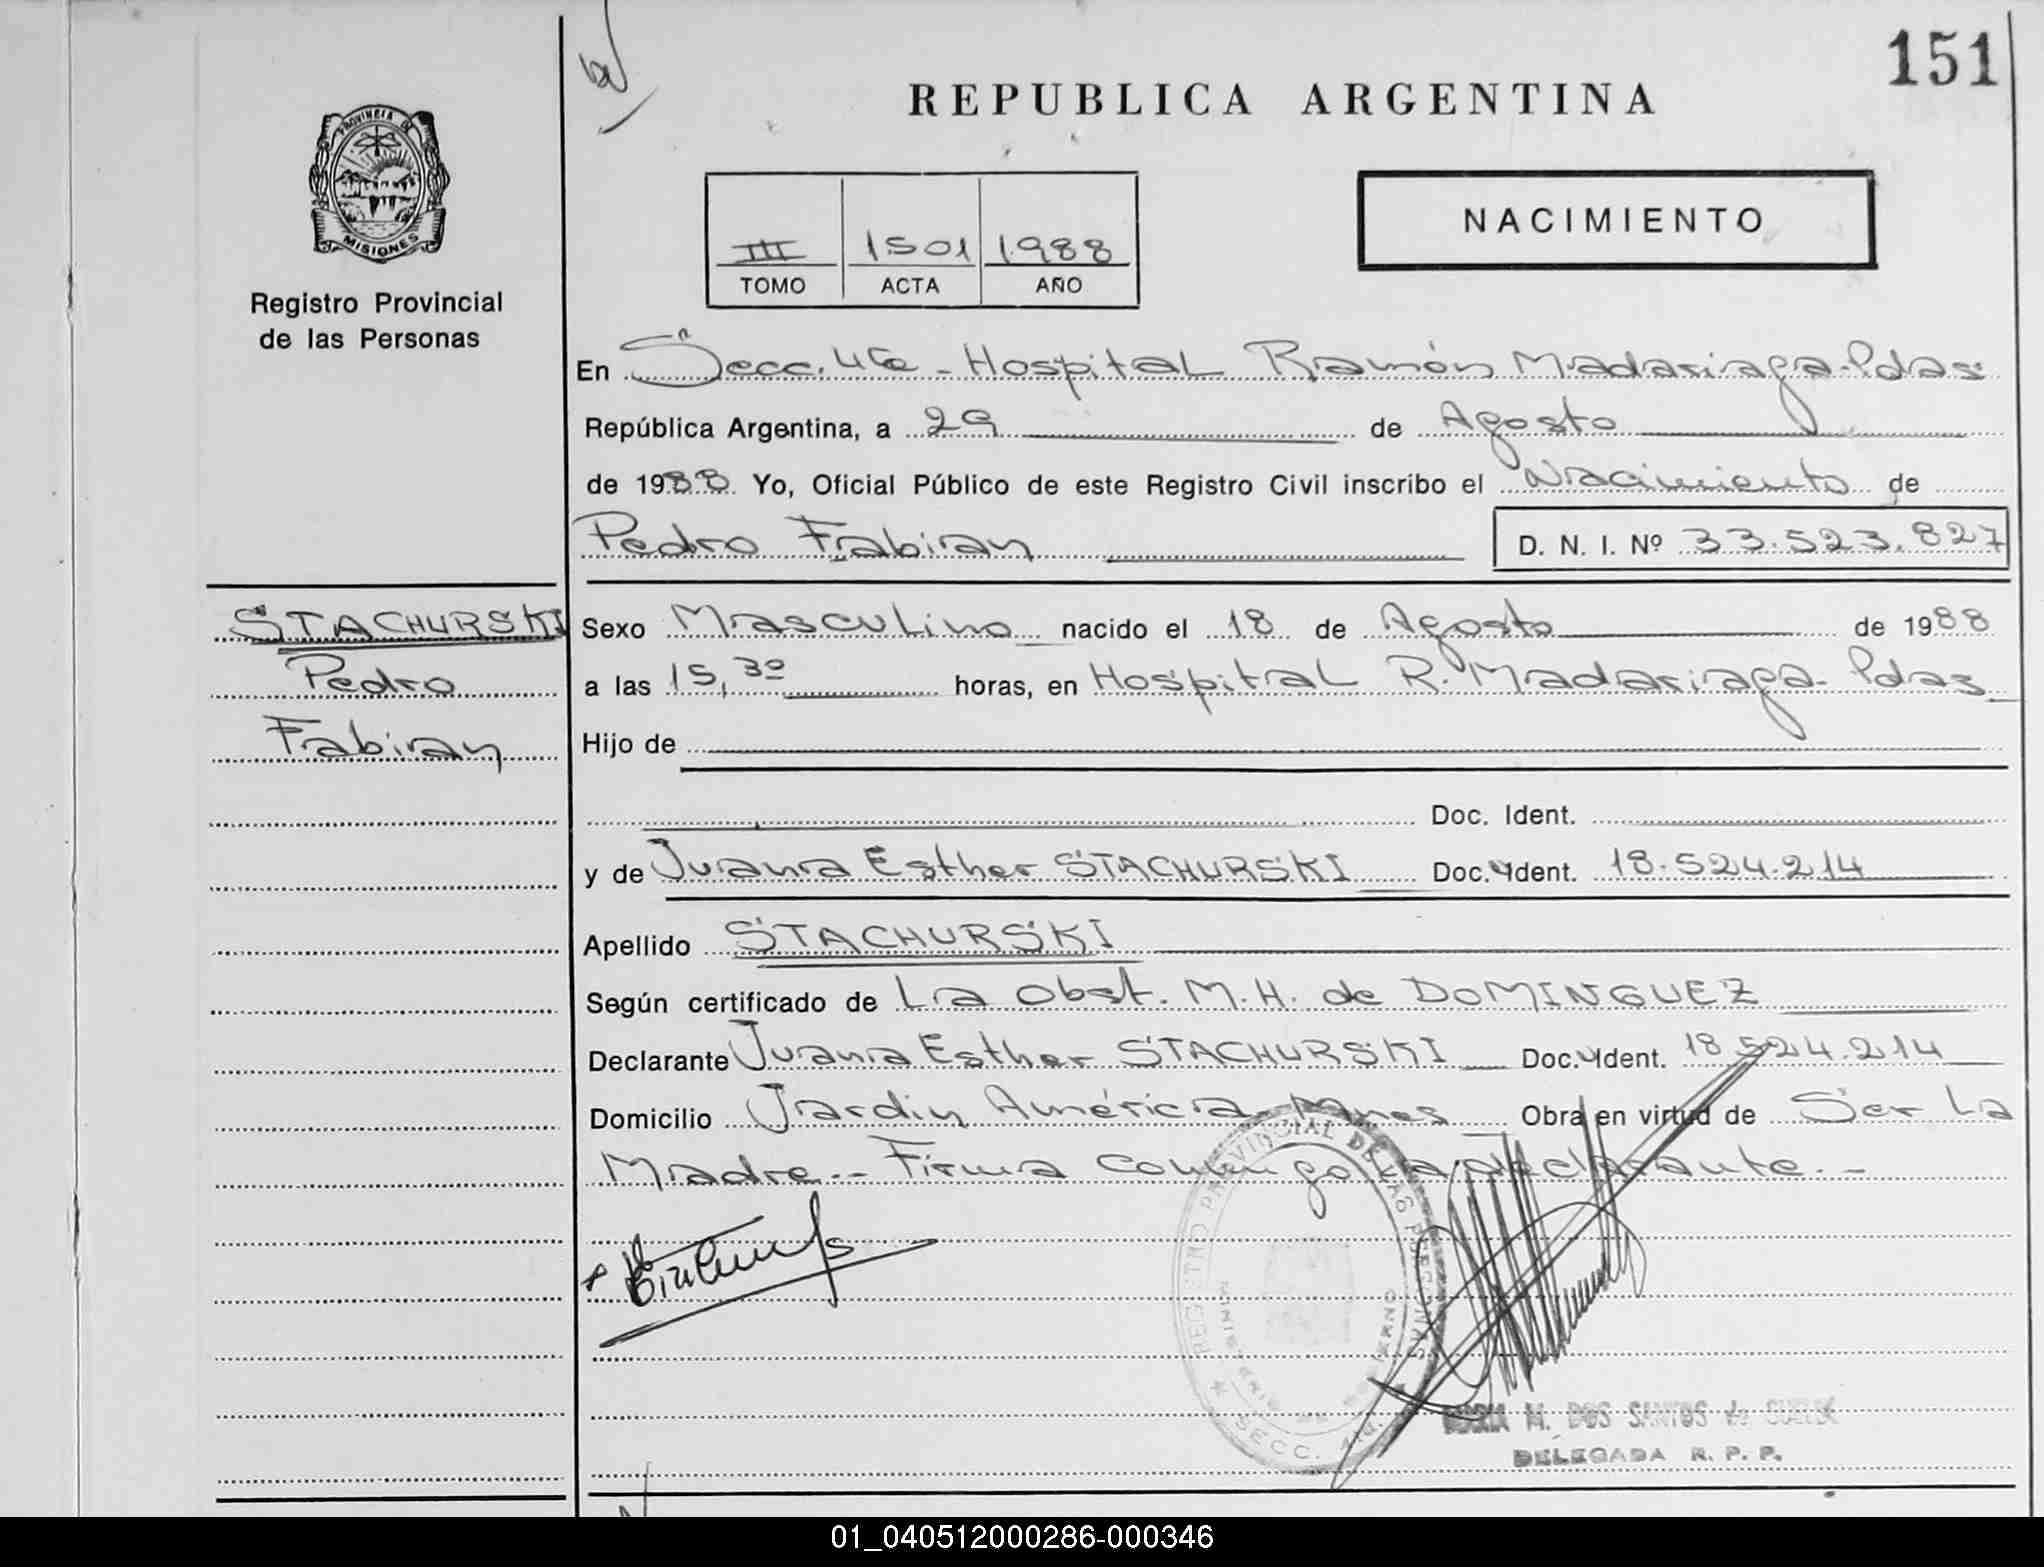 151
REPUBLICA ARGENTINA
PROVINCIA DE
MISIONES
Registro Provincial
de las Personas
NACIMIENTO
III 1501 1988
TOMO ACTA AÑO
En Secc. 4ta - Hospital Ramón Madariaga - Pdas
República Argentina, a 29 de Agosto
de 1988 Yo, Oficial Público de este Registro Civil inscribo el Nacimiento de
Pedro Fabian D. N. I. Nº 33.523.827
STACHURSKI
Pedro
Fabian
Sexo Masculino nacido el 18 de Agosto de 1988
a las 15,30 horas, en Hospital R. Madariaga - Pdas
Hijo de
Doc. Ident.
y de Juana Esther STACHURSKI Doc. Ident. 18.524.214
Apellido STACHURSKI
Según certificado de La Obst. M.H. de DOMINGUEZ
Declarante Juana Esther STACHURSKI Doc. Ident. 18.524.214
Domicilio Jardin América - Mnes Obra en virtud de Ser La
Madre -- Firma conmigo la declarante. -
REGISTRO PROVINCIAL DE LAS PERSONAS
MINISTERIO DE GOBIERNO
SECC.
MARIA M. DOS SANTOS de
DELEGADA R. P. P.
01_040512000286-000346